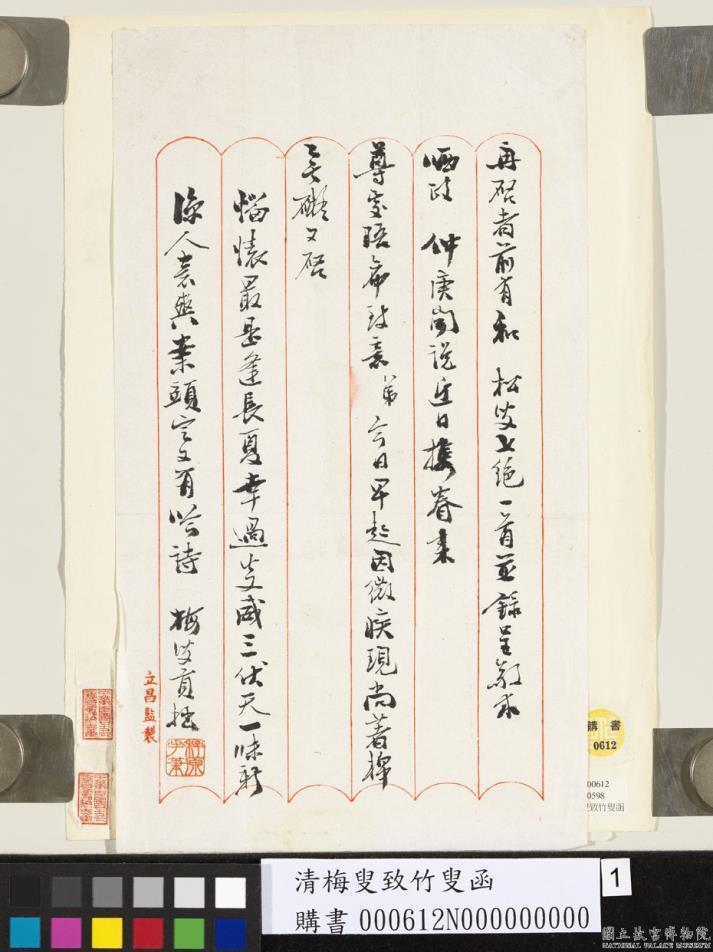 再啓者前有和 松叟七絕一首並錄呈敬求
哂政 仲庚聞說近日攜眷來
尊處晤希致意弟 今日早起因微疾現尚著
無礙又啓
惱懷最是逢長夏幸過炎威三伏天一味新
涼人意爽案頭定又有吟詩 梅叟貢拙
立昌監製
購書
0612
00612
0598
叟致竹叟函
清梅叟致竹叟函
購書000612N000000000
1
國立故宮博物院
NATIONAL PALACE MUSEUM